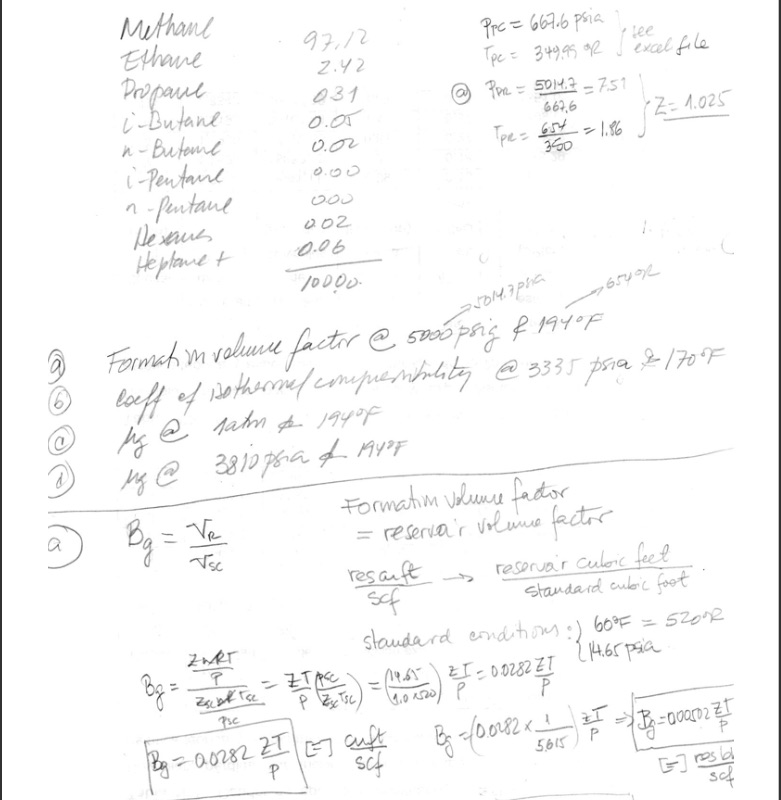 Methane 97.12
Ethane 2.42
Propane 0.31
i-Butane 0.05
n-Butane 0.02
i-Pentane 0.00
n-Pentane 000
Hexanes 0.02
Heptane + 0.06
100.00
Ppc = 667.6 psia
Tpc = 349.99 ºR } see excel file
@ PPR = 5014.7/667.6 = 7.51
TPR = 654/350 = 1.86 } Z = 1.025
→ 5014.7 psia → 654ºR
a) Formation volume factor @ 5000 psig & 194ºF
b) Coeff of isothermal compressibility @ 3335 psia & 170ºF
c) μg @ 1atm & 194ºF
d) μg @ 3810 psia & 194ºF
a) Bg = VR/Vsc
Formation volume factor
= reservoir volume factor
res cuft/scf → reservoir cubic feet/standard cubic foot.
standard conditions: { 60ºF = 520ºR
14.65 psia
Bg = (ZnRT/P)/(Zsc nR Tsc/Psc) = ZT/P (Psc/Zsc Tsc) = (14.65/1.0 x 520) ZT/P = 0.0282 ZT/P
Bg = 0.0282 ZT/P [=] cuft/scf
Bg = (0.0282 x 1/5.615) ZT/P ⇒ Bg = 0.00502 ZT/P
[=] res bbl/scf